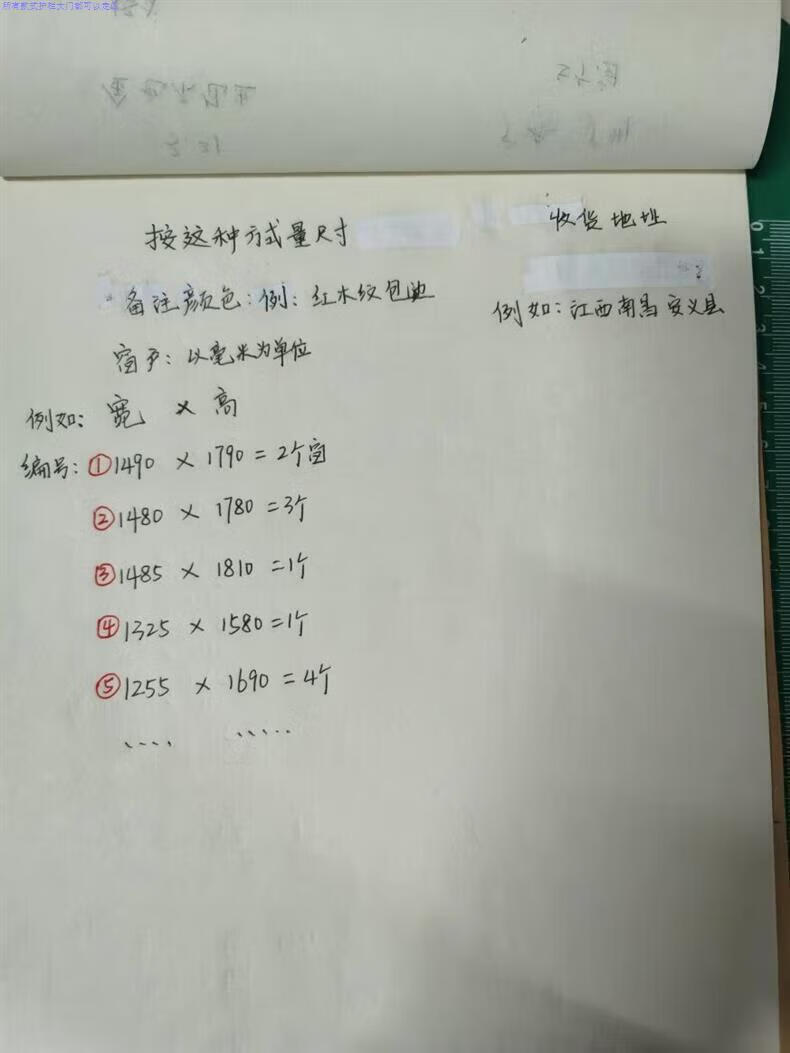 所有款式护栏大门都可以定做
按这种方式量尺寸
收货地址
备注颜色:例:红木纹包边
例如:江西南昌安义县
窗户:以毫米为单位
例如: 宽 × 高
编号:①1490 × 1790 = 2个窗
②1480 × 1780 = 3个
③1485 × 1810 = 1个
④1325 × 1580 = 1个
⑤1255 × 1690 = 4个
..... .....